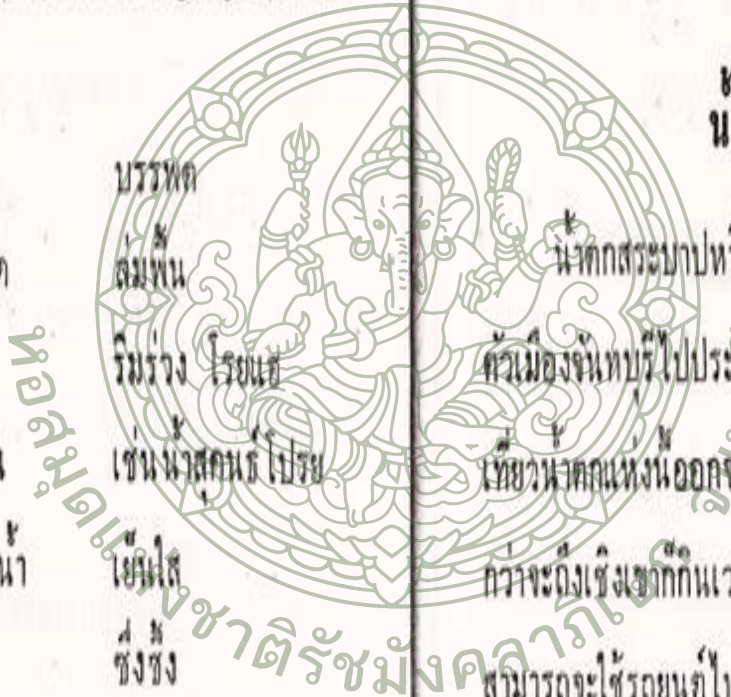 บรรพต
ล่มพื้น
ริมร่วง โรยแฮ
เช่นน้ำสุคนธ์โปรย
น้ำ เย็นใส
ซึ่งซึ้ง
น้ำตกสระบาปห
ตัวเมืองจันทบุรีไปประ
เที่ยวน้ำตกแห่งนี้ออกจ
กว่าจะถึงเชิงเขาก็กินเว
สามารถจะใช้รถยนต์ไป
หอสมุดแห่งชาติรัชมังคลาภิเษก จันท